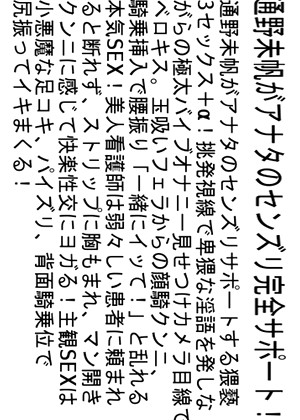 通野未帆がアナタのセンズリ完全サポート！
通野未帆がアナタのセンズリサポートする猥褻
3セックス+α！挑発視線で卑猥な淫語を発しな
がらの極太バイブオナニー見せつけカメラ目線で
ベロキス。玉吸いフェラからの顔騎クンニ、
騎乗挿入で腰振り「一緒にイッて！」と乱れる
本気SEX！美人看護師は弱々しい患者に頼まれ
ると断れず、ストリップに胸もまれ、マン開き
クンニに感じて快楽性交にヨガる！主観SEXは
小悪魔な足コキ、パイズリ、背面騎乗位で
尻振ってイキまくる！